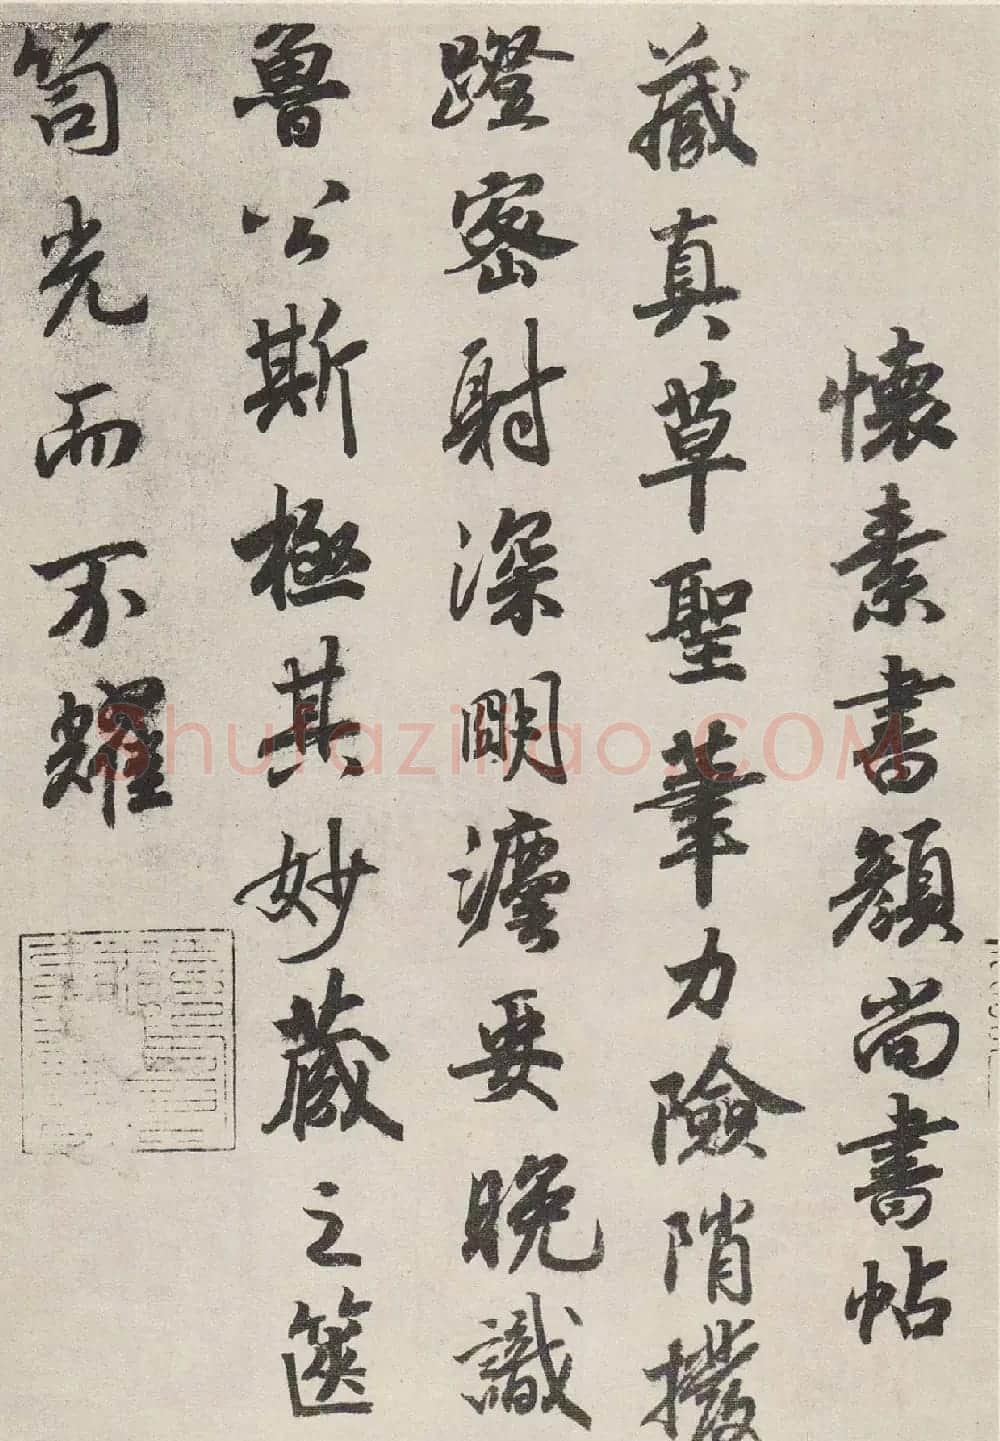 懷素書顏尚書帖
藏真草聖筆力險陗撥
蹬密射深明瀍要晚識
魯公斯極其妙藏之篋
笥光而不耀
Shufaziliao.COM